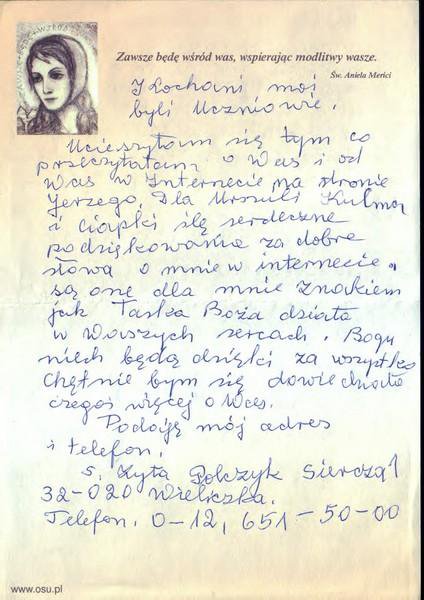 Zawsze będę wśród was, wspierając modlitwy wasze.
Św. Aniela Merici
Kochani moi
byli Uczniowie.
Ucieszyłam się tym co
przeczytałam o Was i od
Was w Internecie na stronie
Jerzego. Dla Urszuli
i ciapki ślę serdeczne
podziękowania za dobre
słowa o mnie w internecie,
są one dla mnie znakiem
jak Łaska Boża działa
w Waszych sercach. Bogu
niech będą dzięki za wszystko
Chętnie bym się dowiedziała
czegoś więcej o Was.
Podaję mój adres
i telefon.
s. Zyta Polczyk Siercza 1
32-020 Wieliczka.
Telefon. 0-12, 651-50-00
www.osu.pl